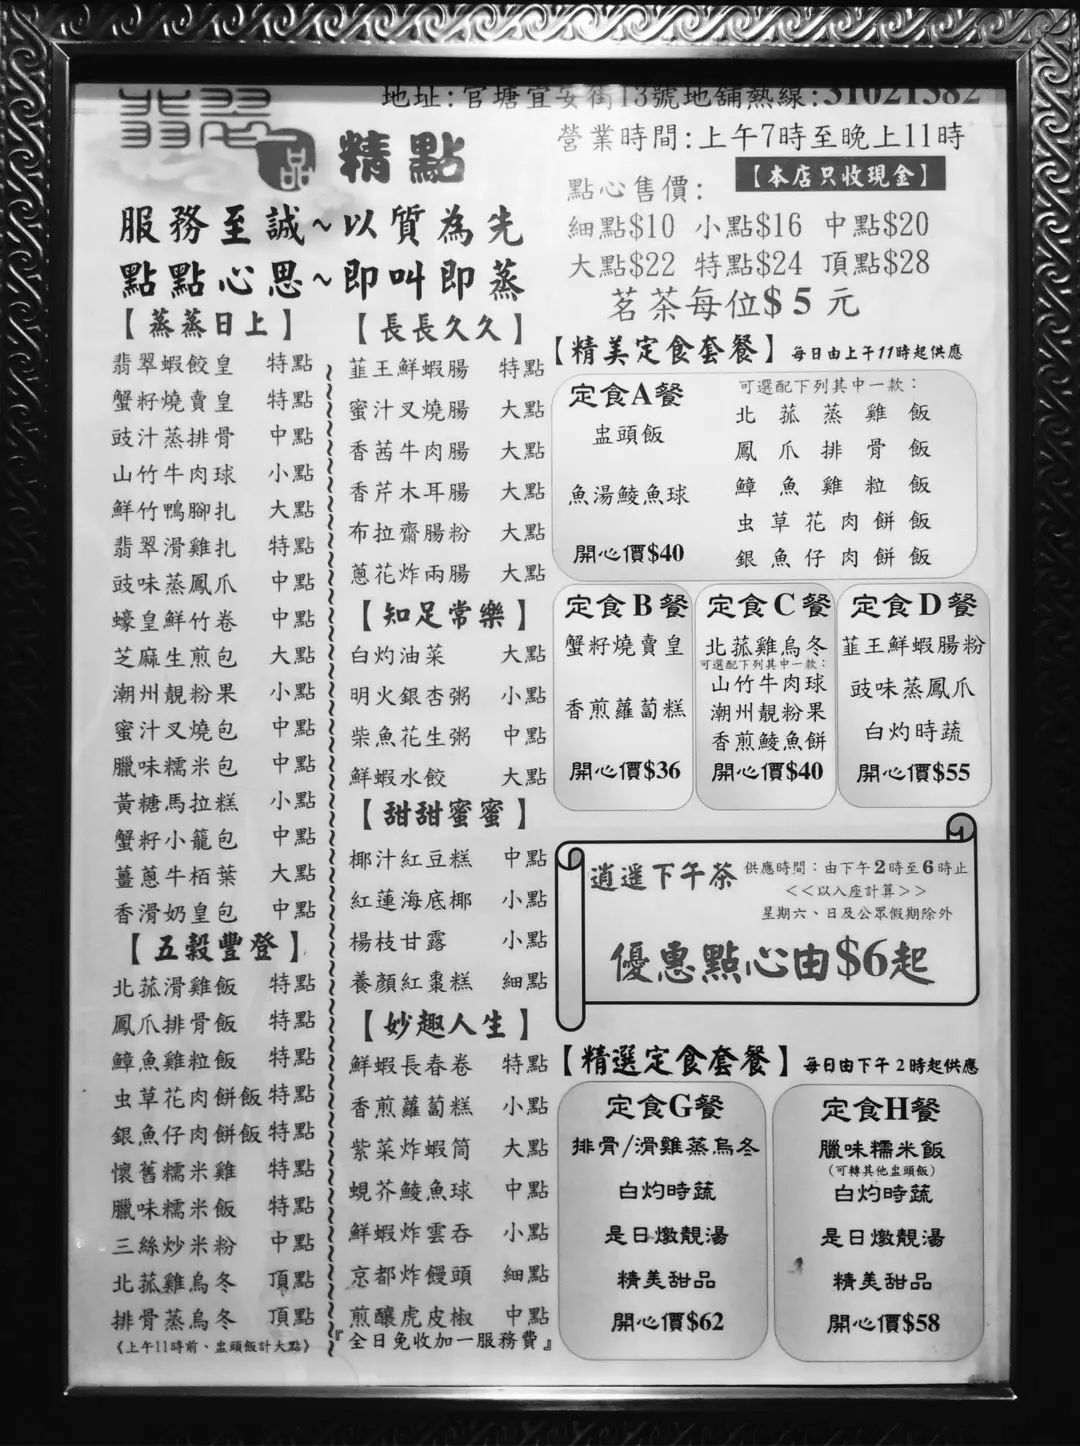 地址:官塘宜安街13號地舖熱線:31021382
翡翠
一品 精點
營業時間:上午7時至晚上11時
【本店只收現金】
點心售價:
細點$10 小點$16 中點$20
大點$22 特點$24 頂點$28
茗茶每位$5元
服務至誠~以質為先
點點心思~即叫即蒸
【蒸蒸日上】
翡翠蝦餃皇 特點
蟹籽燒賣皇 特點
豉汁蒸排骨 中點
山竹牛肉球 小點
鮮竹鴨腳扎 大點
翡翠滑雞扎 特點
豉味蒸鳳爪 中點
蠔皇鮮竹卷 中點
芝麻生煎包 大點
潮州靚粉果 小點
蜜汁叉燒包 中點
臘味糯米包 中點
黃糖馬拉糕 小點
蟹籽小籠包 中點
薑蔥牛栢葉 大點
香滑奶皇包 中點
【五穀豐登】
北菰滑雞飯 特點
鳳爪排骨飯 特點
鱆魚雞粒飯 特點
虫草花肉餅飯 特點
銀魚仔肉餅飯 特點
懷舊糯米雞 特點
臘味糯米飯 特點
三絲炒米粉 中點
北菰雞烏冬 頂點
排骨蒸烏冬 頂點
《上午11時前、盅頭飯計大點》
【長長久久】
韮王鮮蝦腸 特點
蜜汁叉燒腸 大點
香茜牛肉腸 大點
香芹木耳腸 大點
布拉齋腸粉 大點
蔥花炸兩腸 大點
【知足常樂】
白灼油菜 大點
明火銀杏粥 小點
柴魚花生粥 中點
鮮蝦水餃 大點
【甜甜蜜蜜】
椰汁紅豆糕 中點
紅蓮海底椰 小點
楊枝甘露 小點
養顏紅棗糕 細點
【妙趣人生】
鮮蝦長春卷 特點
香煎蘿蔔糕 小點
紫菜炸蝦筒 大點
蜆芥鯪魚球 中點
鮮蝦炸雲吞 小點
京都炸饅頭 細點
煎釀虎皮椒 中點
『全日免收加一服務費』
【精美定食套餐】每日由上午11時起供應
定食A餐
盅頭飯
魚湯鯪魚球
開心價$40
可選配下列其中一款:
北菰蒸雞飯
鳳爪排骨飯
鱆魚雞粒飯
虫草花肉餅飯
銀魚仔肉餅飯
定食B餐
蟹籽燒賣皇
香煎蘿蔔糕
開心價$36
定食C餐
北菰雞烏冬
可選配下列其中一款:
山竹牛肉球
潮州靚粉果
香煎鯪魚餅
開心價$40
定食D餐
韮王鮮蝦腸粉
豉味蒸鳳爪
白灼時蔬
開心價$55
逍遥下午茶 供應時間:由下午2時至6時止
<<以入座計算>>
星期六、日及公眾假期除外
優惠點心由$6起
【精選定食套餐】每日由下午2時起供應
定食G餐
排骨/滑雞蒸烏冬
白灼時蔬
是日燉靚湯
精美甜品
開心價$62
定食H餐
臘味糯米飯
(可轉其他盅頭飯)
白灼時蔬
是日燉靚湯
精美甜品
開心價$58